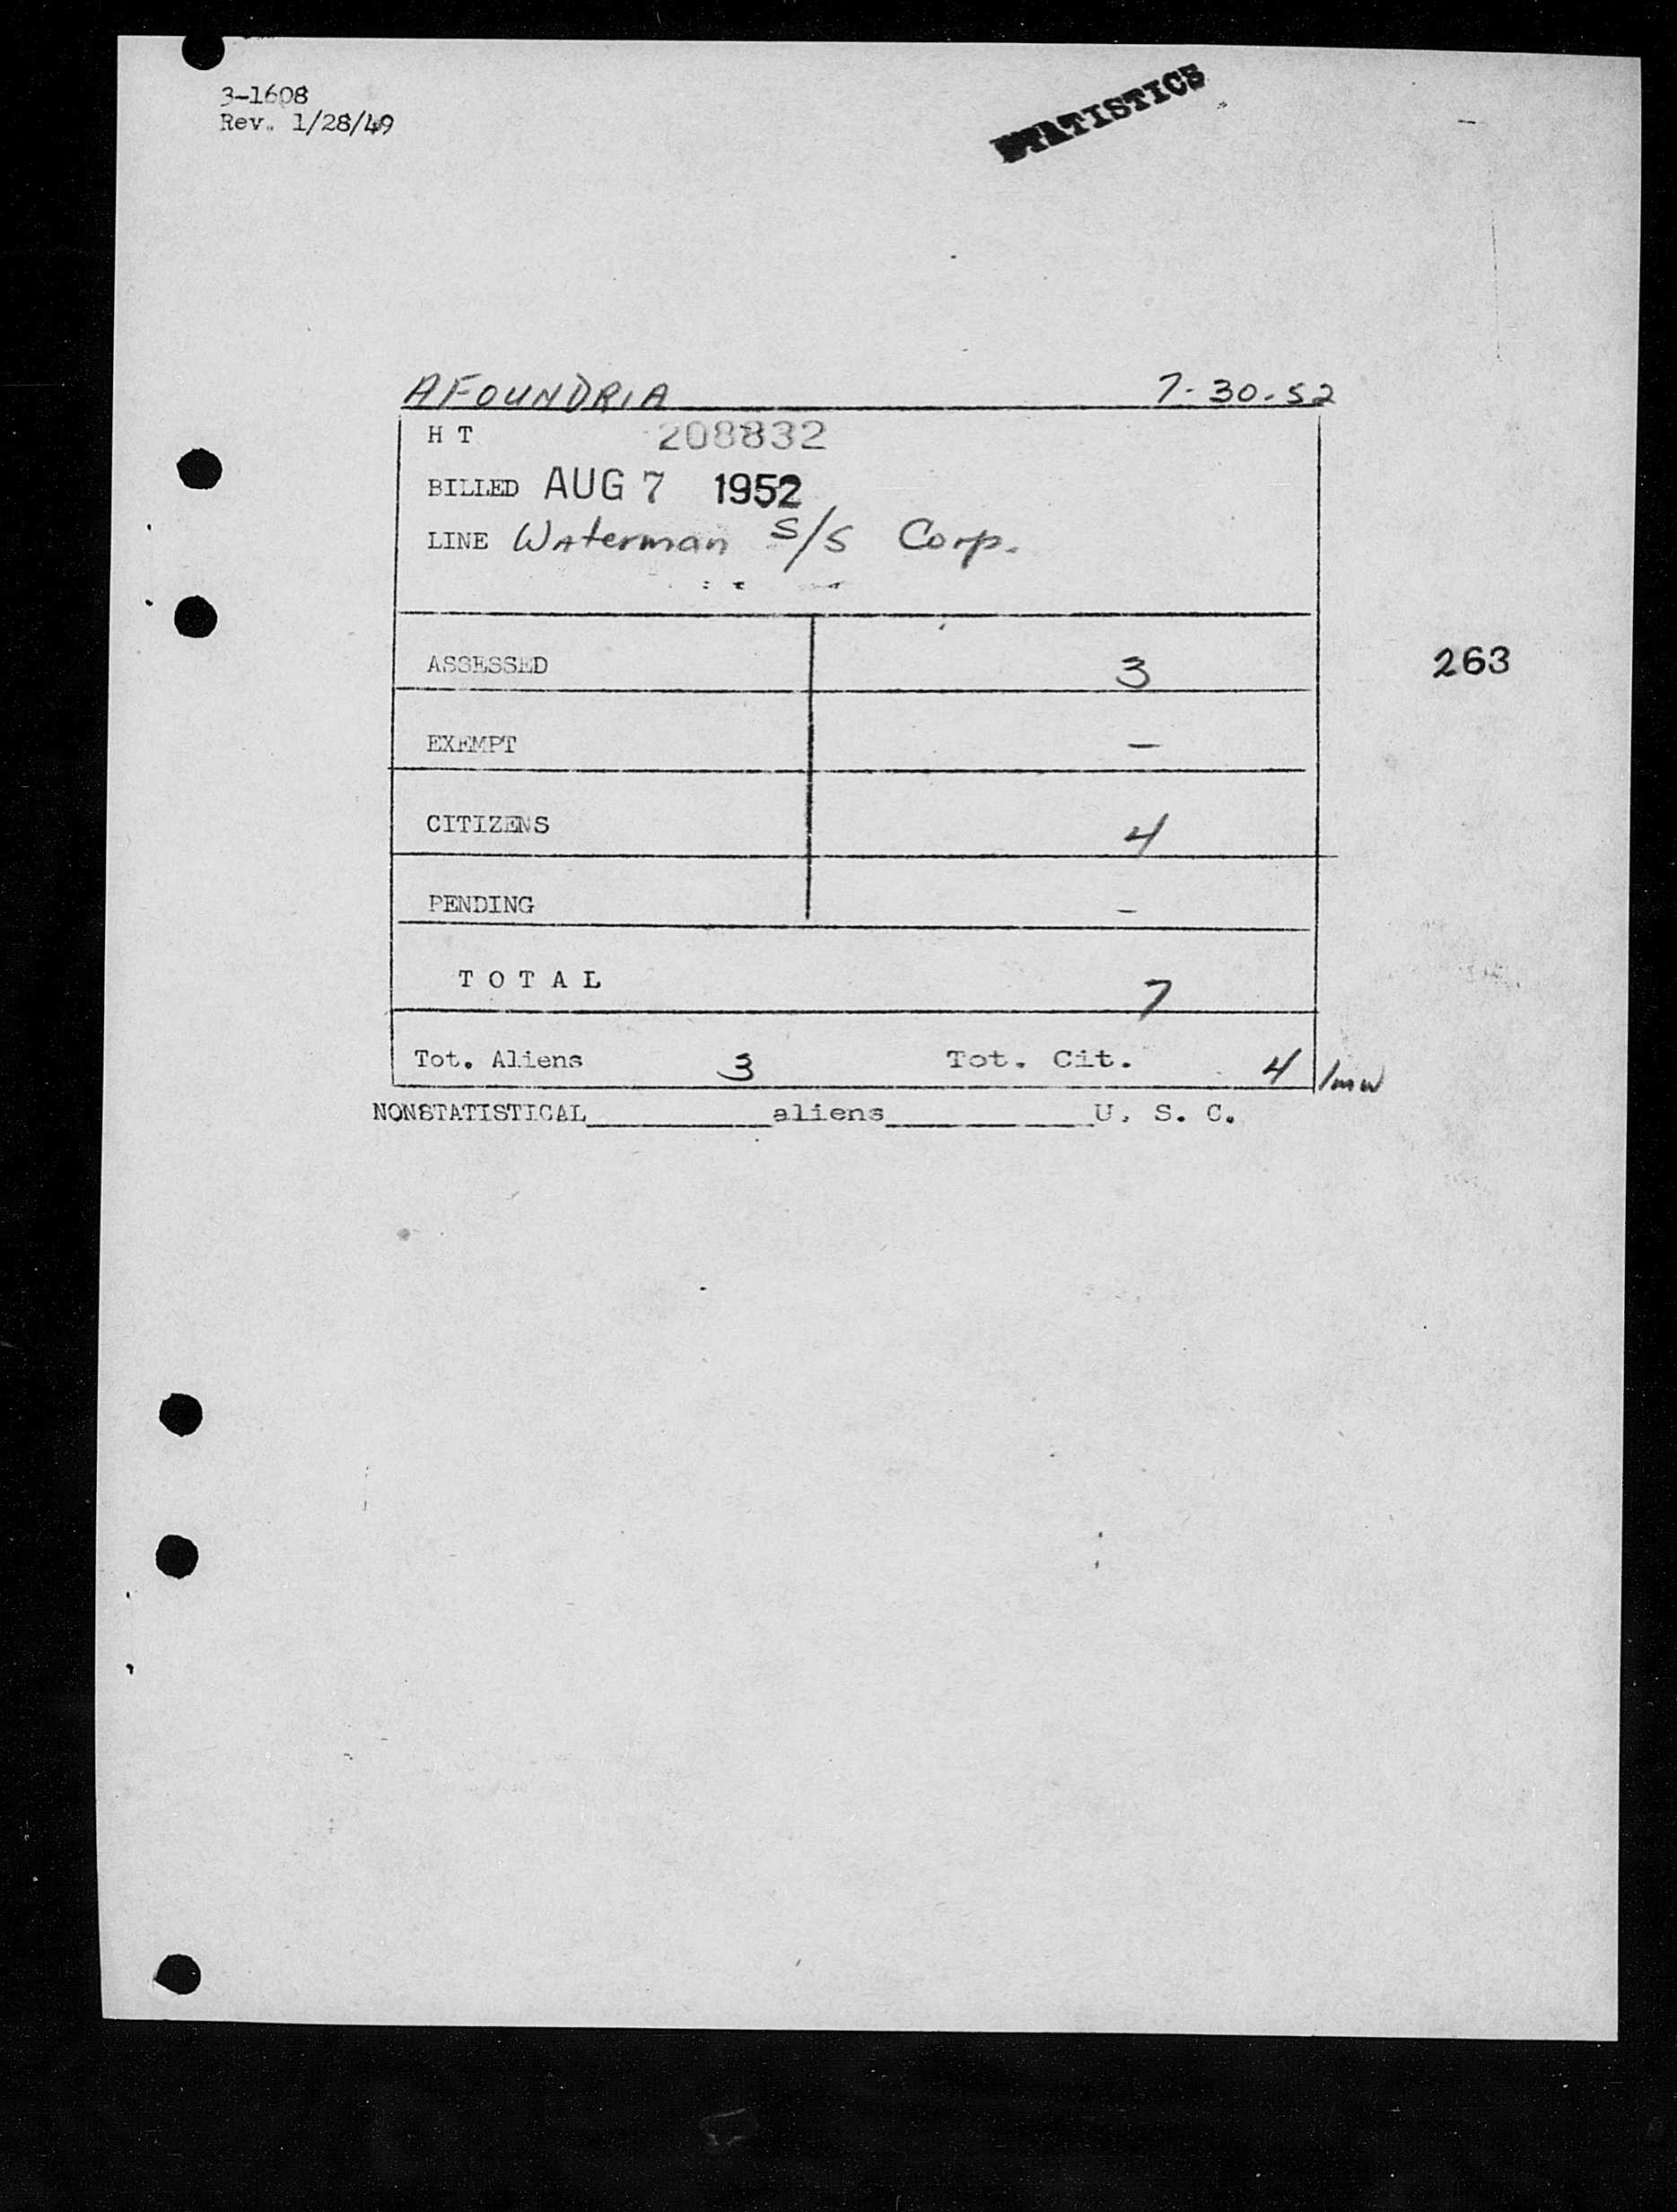 3-1608
Rev. 1/28/49
STATISTICS
AFOUNDRIA 7-30-52
H T 208832
BILLED AUG 7 1952
LINE Waterman S/S Corp.
ASSESSED 3
263
EXEMPT —
CITIZENS 4
PENDING –
T O T A L 7
Tot. Aliens 3 Tot. Cit. 4 /mw
NONSTATISTICAL__________aliens__________U. S. C.